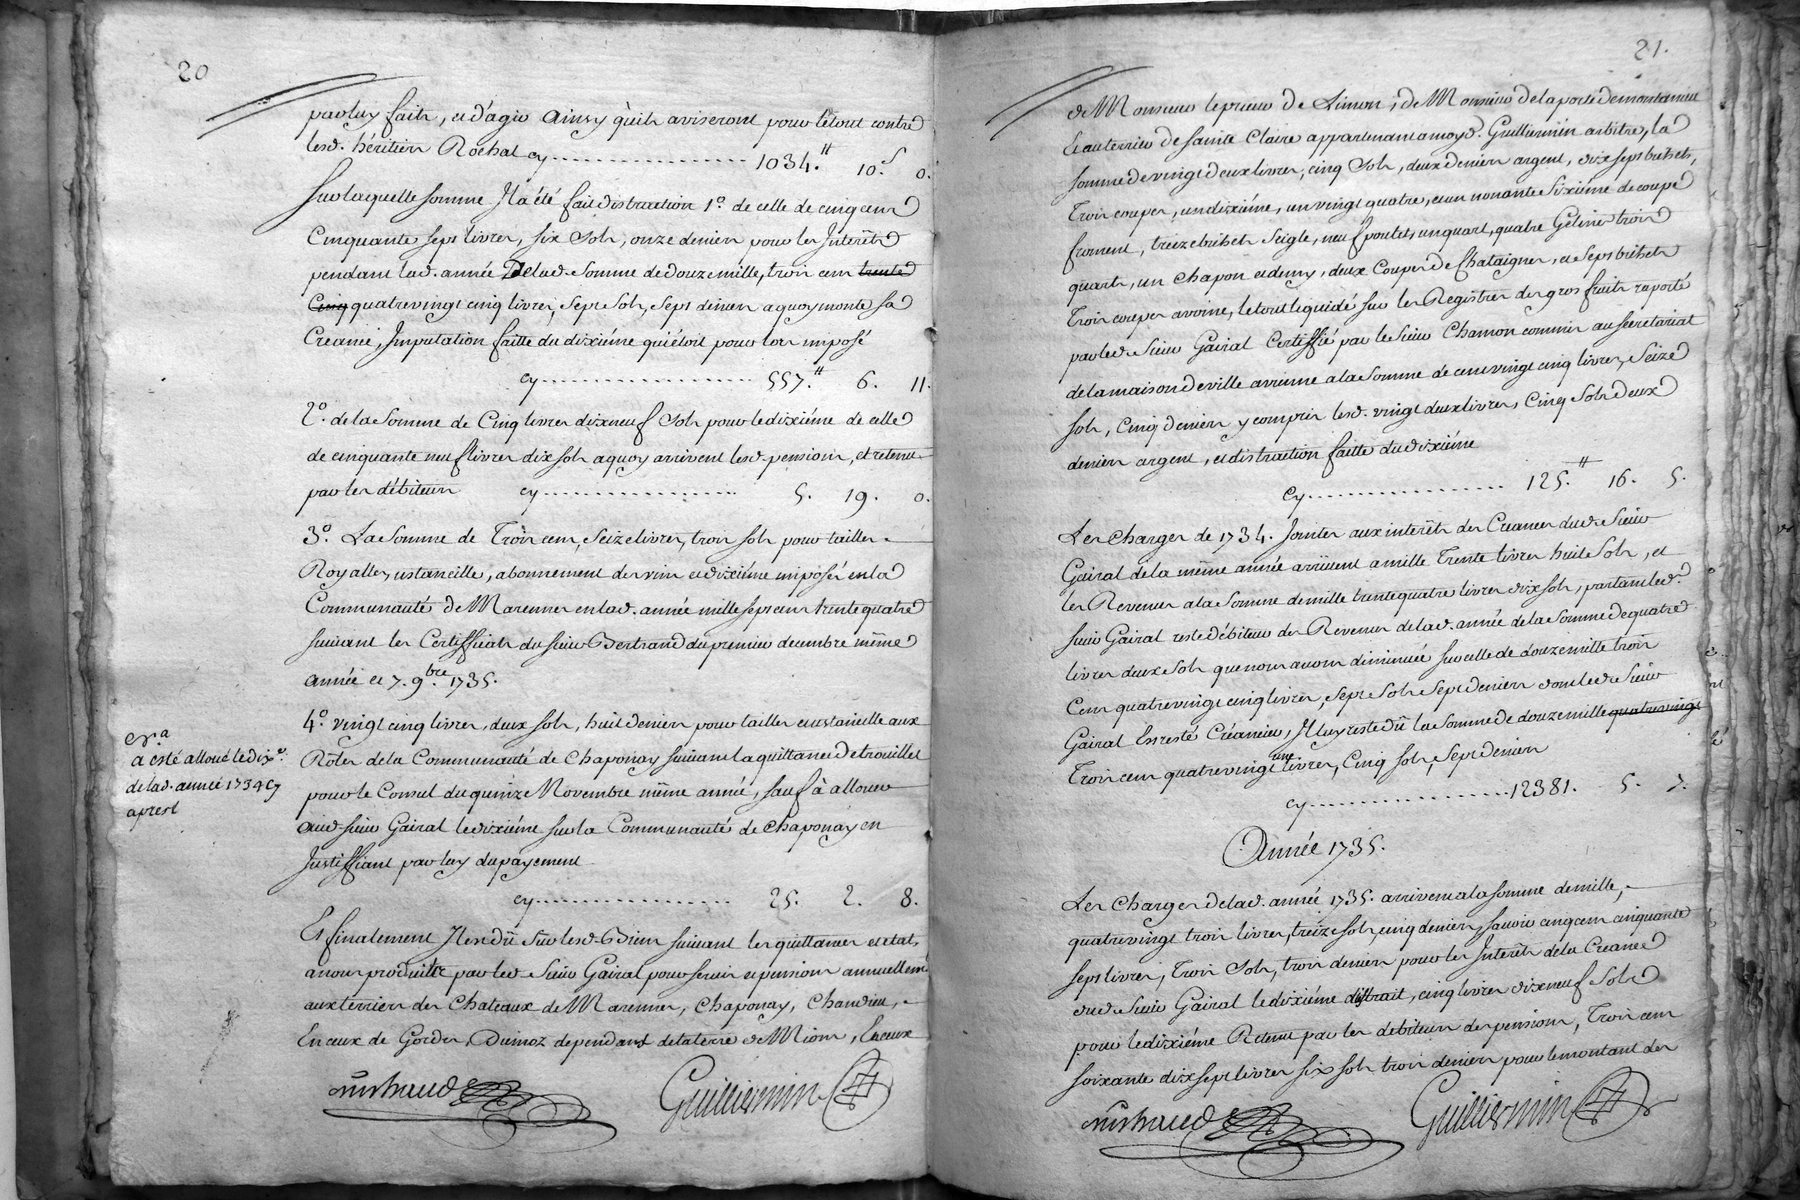 20
par luy faits, et d'agir ainsy qu'ils aviseront pour le tout contre
lesd. héritiers Rochat cy .................... 1034.# 10.s 0.
Sur laquelle somme Il a été fait distraction 1°. de celle de cinq cent
Cinquante sept livres, six sols, onze deniers pour les Interêts
pendant lad. année De lad. somme de douze mille, trois cent trente
Cinq quatre vingt cinq livres, sept sols, sept deniers a quoy monte sa
Creance, Imputation faitte du dixiéme qui étoit pour lors imposé
cy .................... 557.# 6. 11.
2°. de la Somme de Cinq livres dix neuf Sols pour le dixiéme de celle
de cinquante neuf livres dix sols a quoy arrivent lesd. pensions, et retenu
par les débiteurs cy .................... 5. 19. 0.
3°. La Somme de Trois cent, Seize livres, trois sols pour tailles
Royalles, ustancille, abonnement des vins et dixiéme imposé en la
Communauté de Marennes en lad. année mille sept cent trente quatre
suivant les Certifficats du sieur Bertrand du premier decembre même
année et 7. 9.bre 1735.
4°. vingt cinq livres, deux sols, huit deniers pour tailles et ustancille aux
Rôles de la Communauté de Chaponay suivant la quittance de trouillet
pour le Consul du quinze Novembre même année, sauf à allouer
aud. sieur Gairal le dixiéme sur la Communauté de Chaponay en
Justiffiant par luy du payement
cy .................... 25. 2. 8.
a esté alloué le dix.e
de lad. année 1734 cy
aprest
Et finalement Il est dû sur lesd. Biens suivant les quittances et etats
a nous produitte par led. Sieur Gairal pour servis et pensions annuellemt
aux terriers des Chateaux de Marennes, Chaponay, Chandieu,
En ceux de Gordes, Dumoz dependant de la terre de Mions, En ceux
Guilliermin
21.
de Monsieur le prieur de Limon, de Monsieur de la porte de montanieu
Et au terrier de Sainte Claire appartenant a moy d. Guilliermin arbitre, la
somme de vingt deux livres, cinq Sols, deux deniers argent, dix sept bichets,
Trois coupes, un dixiéme, un vingt quatre, et un nonante Sixiéme de coupe
froment, treize bichets Seigle, neuf poulets, un quart, quatre Gelines trois
quarts, un Chapon et demy, deux Coupes de Chataignes, et sept bichets
Trois coupes avoine, le tout liquidé sur les Registres des gros fruits raporté
par led. Sieur Gairal Certiffié par le Sieur Chamon commis au secretariat
de la maison de ville arrivne a la Somme de cent vingt cinq livres, Seize
sols, Cinq deniers y compris lesd. vingt deux livres, Cinq Sols deux
deniers argent, et distraction faitte du dixiéme
cy .................... 125.# 16. 5.
Les Charges de 1734. Jointes aux interêts des Creances dud. Sieur
Gairal de la même année arrivent a mille Trente livres huit Sols, et
les Revenus a la Somme de mille trente quatre livres dix sols, partant led.
sieur Gairal reste débiteur des Revenus de lad. année de la Somme de quatre
livres deux Sols que nous avons diminuée sur celle de douze mille trois
Cent quatre vingt cinq livres, sept Sols sept deniers dont led. Sieur
Gairal En resté Créancier, Il luy reste dû la Somme de douze mille quatre vingt
Trois cent quatre vingt une livres, Cinq sols, sept deniers
cy .................... 12381. 5. 7.
Année 1735.
Les Charges de lad. année 1735. arrivent a la somme de mille,
quatre vingt trois livres, treize sols, cinq deniers, sçavoir cinq cent cinquante
sept livres, Trois Sols, trois deniers pour les Interêts de la Creance
dud. Sieur Gairal le dixiéme distrait, cinq livres dix neuf Sols
pour le dixiéme Retenu par les debiteurs des pensions, Trois cent
soixante dix sept livres six sols trois deniers pour le montant des
Guilliermin